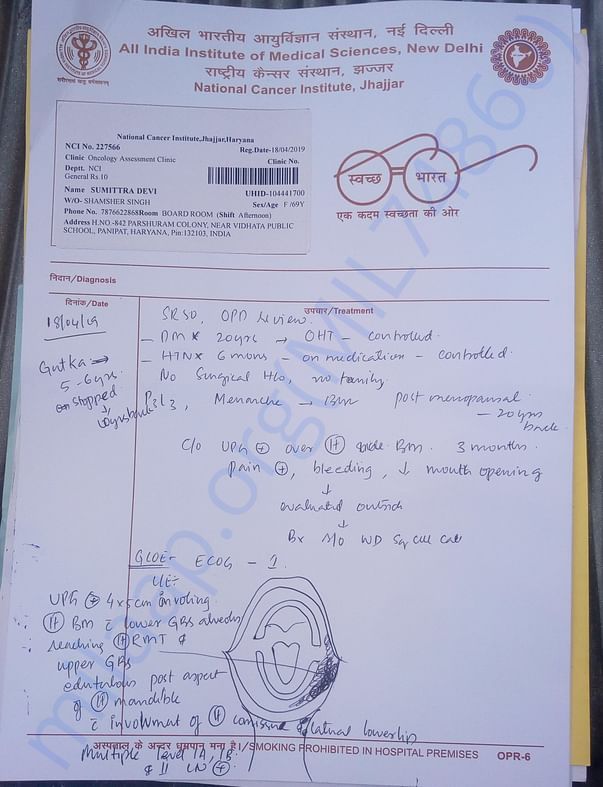 अखिल भारतीय आयुर्विज्ञान संस्थान, नई दिल्ली
All India Institute of Medical Sciences, New Delhi
राष्ट्रीय कैन्सर संस्थान, झज्जर
National Cancer Institute, Jhajjar
National Cancer Institute,Jhajjar,Haryana
NCI No. 227566
Reg.Date-18/04/2019
Clinic Oncology Assessment Clinic
Clinic No.
Deptt. NCI
General Rs.10
Name SUMITTRA DEVI
UHID-104441700
W/O- SHAMSHER SINGH
Sex/Age F /69Y
Phone No. 7876622868Room BOARD ROOM (Shift Afternoon)
Address H.NO.-842 PARSHURAM COLONY, NEAR VIDHATA PUBLIC
SCHOOL, PANIPAT, HARYANA, Pin:132103, INDIA
स्वच्छ भारत
एक कदम स्वच्छता की ओर
निदान/Diagnosis
दिनांक/Date
उपचार/Treatment
18/04/19
OPD review.
- DM x 20yrs → OHT - controlled
- HTN x 6 mons - on medication - controlled.
No surgical H/o, no family.
Gutka
5-6yrs
stopped
10yrs back
P3L3, Menarche → post menopausal
- 20yrs back
C/o UPG + over side BM. 3 months
Pain +, bleeding, ↓ mouth opening
↓
evaluated outside
↓
Bx s/o WD Sq cell
ECOG - 1
UPG + 4x5cm involving
BM c lower GBS
reaching RMT &
upper GBS
edentulous post aspect
of mandible
c involvement of & lateral lower lip
अस्पताल के अन्दर धूम्रपान मना है।/SMOKING PROHIBITED IN HOSPITAL PREMISES
OPR-6
Multiple level IA, IB
& II LN +
milaap.org